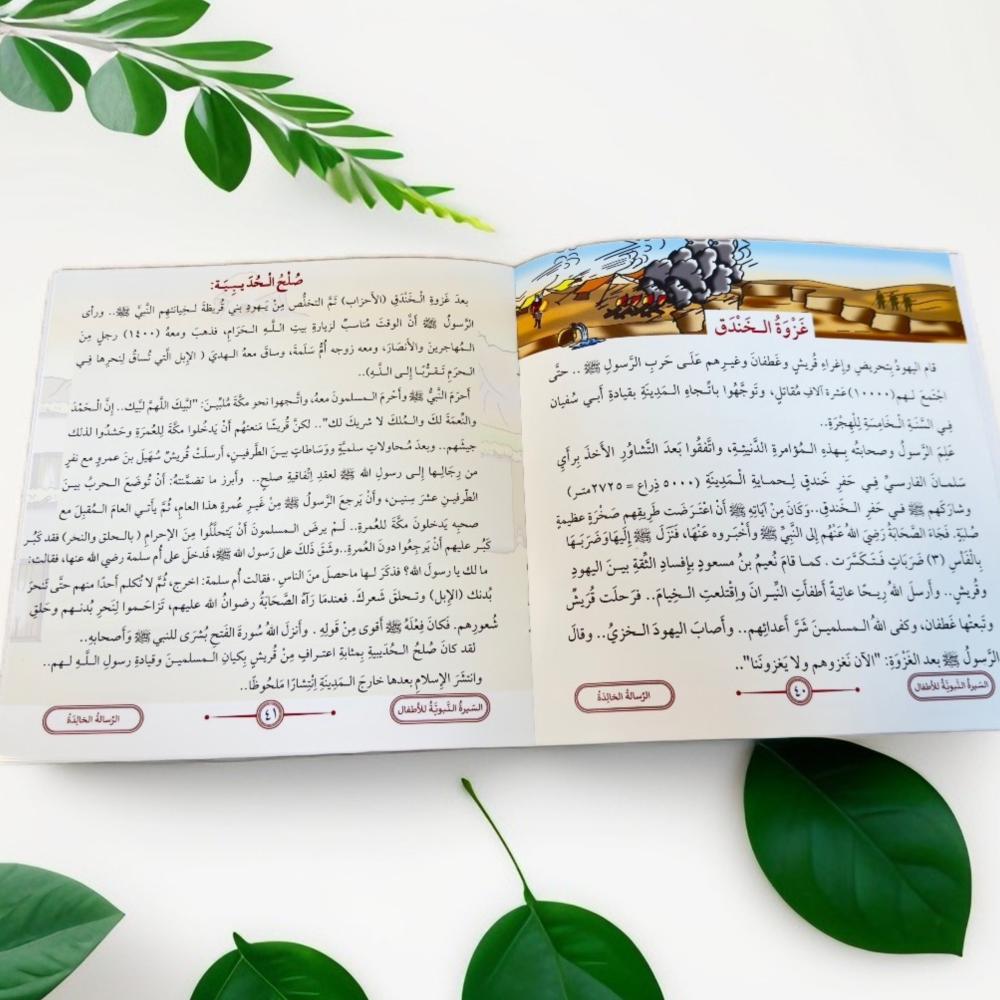 غَزْوَةُ الـخَنْدَق
قام اليهودُ بِتحريضِ وإغراءِ قُريشٍ وغَطفانَ وغيرِهم عَلَـى حَربِ الرَّسولِ ﷺ .. حتَّى
اجْتمعَ لـهم (١٠٠٠٠) عَشرة آلافِ مُقاتلٍ، وتَوجَّهُوا باتِّجاهِ الـمَدِينَةِ بِقيادةِ أبـي سُفيان
فِـي السَّنَةِ الْـخَامِسَةِ لِلْهِجْرَةِ..
عَلِمَ الرَّسولُ وصحابتُه بِـهذِهِ الـمُؤامرةِ الدَّنيئةِ، واتَّفقُوا بَعدَ التَّشاوُرِ الأخذَ بِرأيِ
سَلمـانَ الفارسيِّ فِـي حَفرِ خَندقٍ لِـحمايةِ الْـمَدِينَةِ (٥٠٠٠ ذِراع = ٢٧٢٥متـر)
وشارَكَهم ﷺ فِـي حَفرِ الـخَندقِ..وَكانَ مِنْ آياتِهِ ﷺ أنْ اعْتـرَضت طَرِيقَهم صَخْرَة عظيمة
صُلبَة. فَجَاءَ الصَّحابَةُ رَضِيَ اللهُ عَنْهُم إلى النَّبِيِّ ﷺ وَأخْبَـروه عَنْهَا، فَنَزَلَ ﷺ إلَيهَا وَضَرَبَـهَا
بِالْفَأسِ (٣) ضَرَباتٍ فَـتَـكَسَّرَت . كمـا قامَ نُعيمُ بنُ مسعودٍ بِإفسادِ الثِّقةِ بينَ اليهودِ
وقُريشٍ.. وأرسلَ اللهُ رِيـحًا عاتِيَةً أطفأتِ النِّيـرانَ واِقْتَلعتِ الـخِيامَ.. فرَحلَت قُرَيشٌ
وتَبعتْها غَطفان، وكفى اللهُ الـمسلمـينَ شَرَّ أعدائِهم.. وأصابَ اليهودَ الـخزيُ.. وقالَ
الرَّسولُ ﷺ بعد الغَزْوَةِ: "الآن نَغزوهم ولا يَغزونَنا"..
السّيرةُ النَّبويَّةُ للأطفال
٤٠
الرِّسالةُ الخالِدَةُ
صُلْحُ الـحُدَيـبِيَـة:
بعدَ غَزوةِ الْـخَنْدَقِ (الأحزابِ) تَمَّ التخلُّص مِنْ يَـهودِ بني قُريظةَ لـخيانتهم النَّبيَّ ﷺ.. ورأى
الرَّسولُ ﷺ أنَّ الوقتَ مُناسبٌ لزيارةِ بيتِ اللَّـهِ الـحَرَامِ، فذهبَ ومعهُ (١٤٠٠) رجلٍ مِنَ
الـمُهاجرينَ والأنْصَارِ، ومعه زوجه أُمُّ سَلَمةَ، وساقَ معهُ الـهديَ ( الإبل الَّتي تُساقُ لِيَنحرها فِـي
الـحرَمِ تَـقرُّبًا إلـى اللَّـهِ)..
أحرَمَ النَّبيُّ ﷺ وأحْرمَ الـمسلمونَ معهُ، واتـجهوا نحو مكَّةَ مُلَبِّينَ: "لبَّيكَ اللهمَّ لبَّيك.. إنَّ الـحَمْدَ
والنِّعمَةَ لكَ والـمُلكَ لا شريكَ لك".. لكنَّ قُريشًا مَنعتهُم أنْ يَدخُلوا مكَّةَ للعُمرَةِ وحَشدُوا لذلك
جيشَهم.. وبعدَ مُـحاولاتٍ سلميَّةٍ ووَسَاطاتٍ بينَ الطَّرفينِ، أرسلَتْ قُريشٌ سُهَيلَ بنَ عمروٍ مع نفرٍ
من رجالِـها إلـى رسولِ الله ﷺ لعقدِ اتِّفاقيةِ صلحٍ.. وأبرز ما تضمَّنتهُ: أنْ تُوضَعَ الـحربُ بينَ
الطَّرفينِ عشرَ سِنِينَ، وأنْ يَرجعَ الرَّسولُ ﷺ مِنْ غَيـرِ عُمرةٍ هذا العام، ثُمَّ يأتـي العامَ المُقبلَ مع
صحبِه يَدخلونَ مكَّةَ للعُمرَةِ.. لَـمْ يرضَ الـمسلمونَ أنْ يَتحلَّلُوا مِنَ الإحرامِ ( بالـحلق والنحر) فقد كَبُـر
كَبُـر عليهم أنْ يَرجِعُوا دونَ العمرةِ..وشَقَّ ذَلكَ على رَسُول اللهِ ﷺ، فَدخلَ على أُم سلمة رضي الله عنها، فقالت:
ما لك يا رسولَ الله؟ فذكَرَ لـها ماحصلَ منَ الناسِ . فقالت أُم سلمة: اخرج، ثُمَّ لا تُكلم أحدًا منهم حتَّى تَنحَرَ
بُدنك (الإبل) وتـحلقَ شَعركَ. فعندمَا رَآهُ الصَّحَابَةُ رضوانُ الله عليهم، تَزاحَـموا لِنَحرِ بُدنـهم وحَلقِ
شُعورِهم. فَكانَ فِعْلُهُ ﷺ أقوى مِنْ قَولِهِ . وأنزلَ اللهُ سُورةَ الفَتحِ بُشرَى للنبي ﷺ وَأصحابهِ..
لقد كانَ صُلْحُ الـحُدَيبيةِ بِمثابةِ اعتـرافٍ مِنْ قُريشٍ بِكيانِ الـمسلميـنَ وقيادةِ رسولِ اللَّـهِ لـهم..
وانتشَرَ الإسلام بعدها خارجَ الـمَدِينَةِ اِنْتِشارًا مَلحُوظًا..
السّيرةُ النَّبويَّةُ للأطفال
٤١
الرِّسالةُ الخالِدَةُ